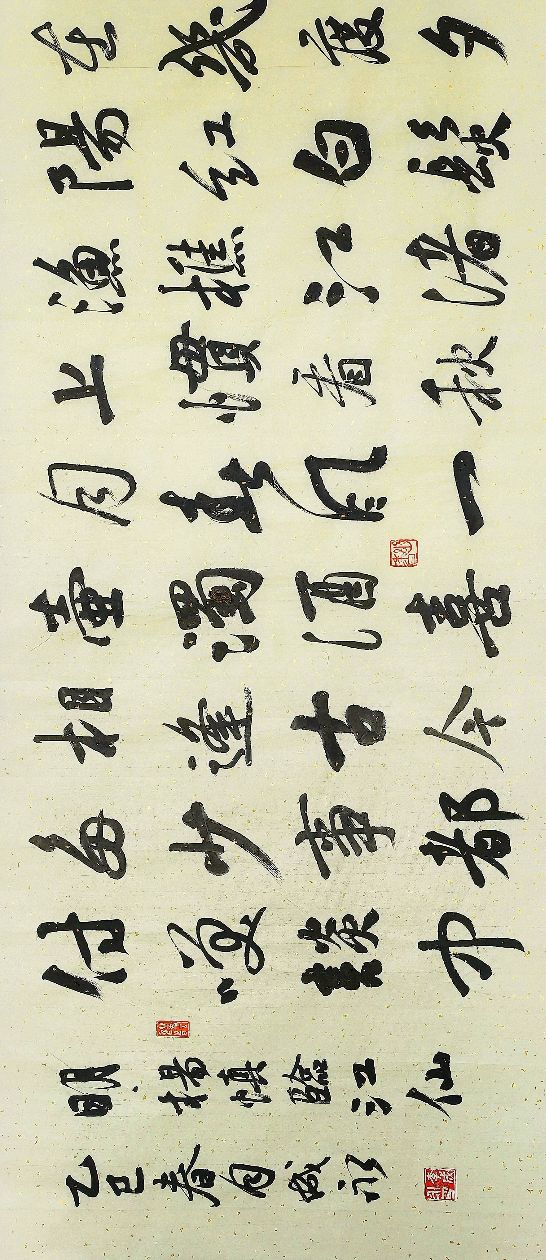 在幾度夕
陽紅白髮
漁樵江渚
上慣看秋
月春風一
壺濁酒喜
相逢古今
多少事都
付笑談中
明楊慎臨江仙
乙巳春月